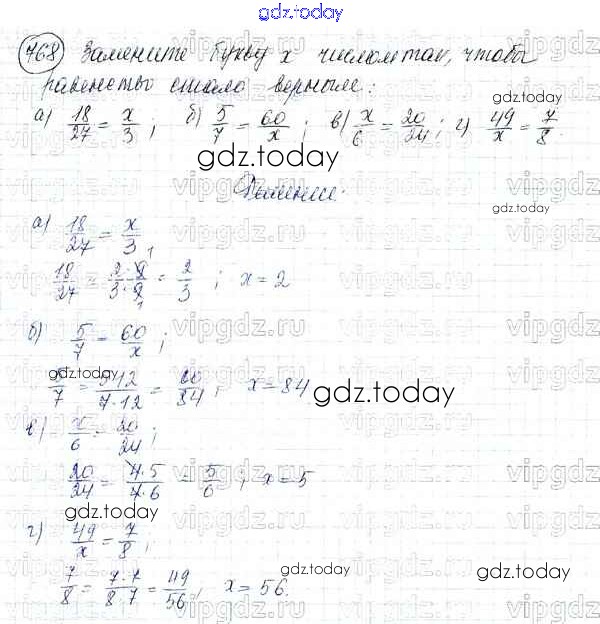 gdz.today
768 Замените букву x числом так, чтобы
равенство стало верным:
а) 18/27 = x/3; б) 5/7 = 60/x; в) x/6 = 20/24; г) 49/x = 7/8.
gdz.today
gdz.today
Решение.
gdz.today
а) 18/27 = x/3
18/27 = 2·9/3·9 = 2/3; x = 2
б) 5/7 = 60/x;
gdz.today
5/7 = 5·12/7·12 = 60/84; x = 84
gdz.today
в) x/6 = 20/24;
20/24 = 4·5/4·6 = 5/6; x = 5
gdz.today
г) 49/x = 7/8;
gdz.today
7/8 = 7·7/8·7 = 49/56; x = 56.
vipgdz.ru